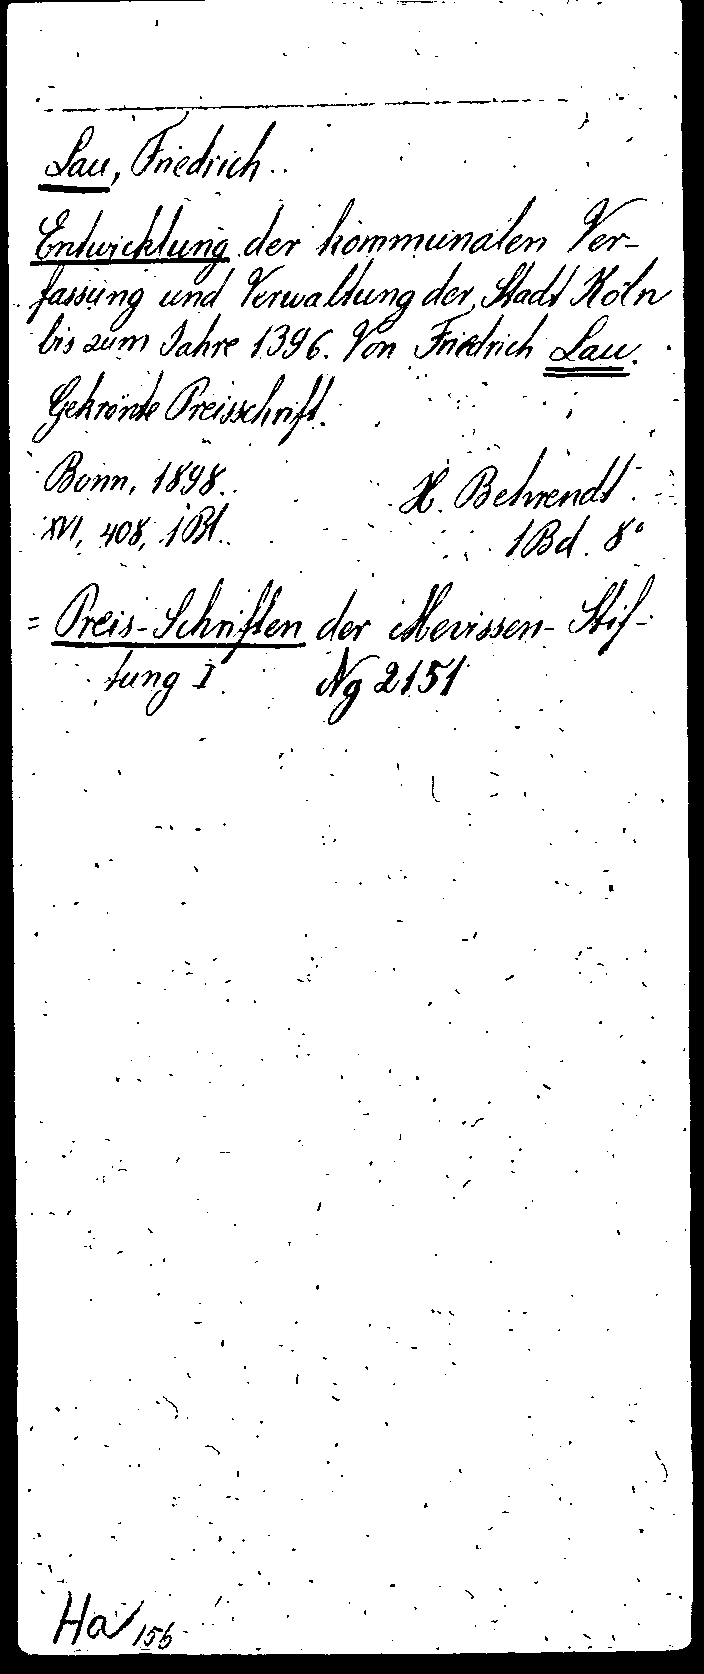 Lau, Friedrich.
Entwicklung der kommunalen Ver-
fassung und Verwaltung der Stadt Köln
bis zum Jahre 1396. Von Friedrich Lau.
Gekrönte Preisschrift.
Bonn, 1898. H. Behrendt.
XVI, 408, 1 Bl. 1 Bd. 8°
= Preis-Schriften der Mevissen-Stif-
tung I Ng 2151
Ha 156